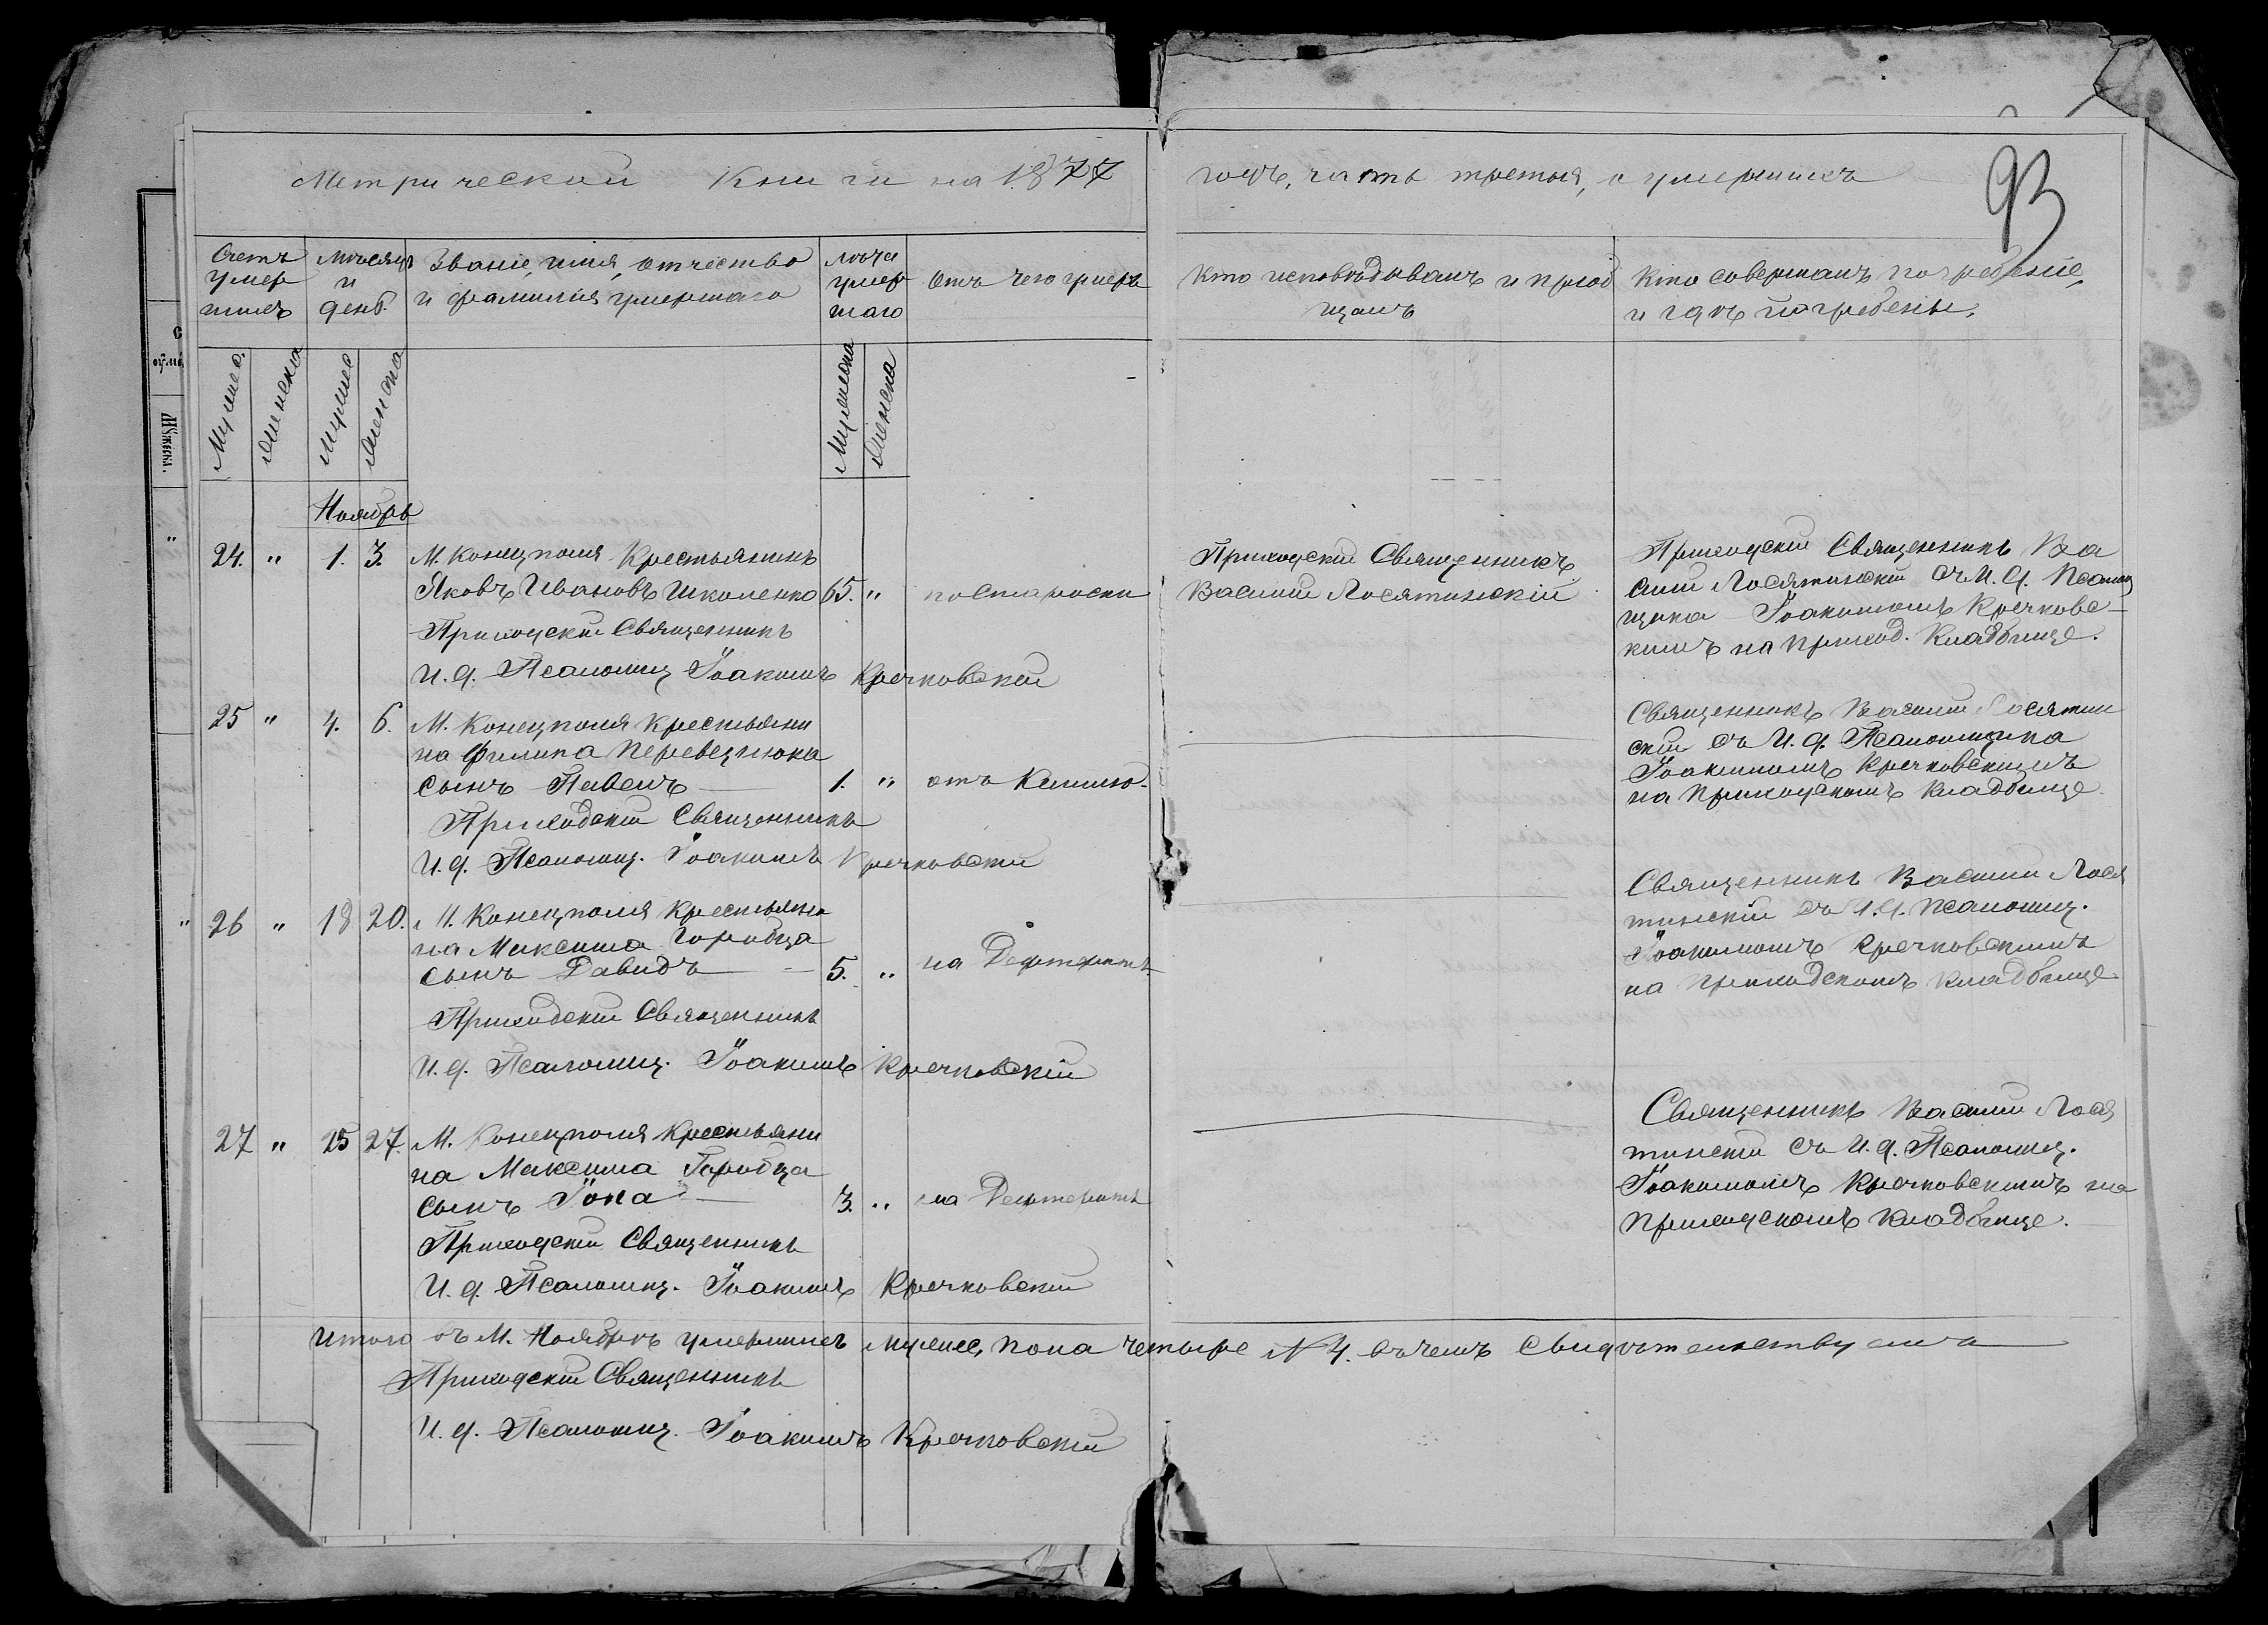 Метрической Книги на 1877
годъ, часть третья, о умершихъ
93
Счетъ
умер
шихъ
Мѣсяцъ
и
день.
Званіе, имя, отчество
и фамилія умершаго
Лѣта
умер
шаго
Отъ чего умеръ
Кто исповѣдывалъ и пріоб
щалъ
Кто совершалъ погребеніе,
и гдѣ погребены.
Мужеск.
Женска
Мужес
Женска
Мужеска
Женска
Ноябрь
24. " 1. 3. М. Конецполя Крестьянинъ
Яковъ Ивановъ Школенко 65. " по старости
Приходскій Священникъ
И. д. Псаломщ Іоакимъ Кречковскій
Приходскій Священникъ
Василій Лосятинскій
Приходскій Священникъ Ва
силій Лосятинскій съ И. д. Псалом
щика Іоакимомъ Кречковс-
кимъ на приход. Кладбище.
25 " 4. 6. М. Конецполя крестьяни
на Филипа Перевезнюка
сынъ Павелъ 1. " отъ Кашлю.
Приходскій Священникъ
И. д. Псаломщ. Іоакимъ Кречковскій
Священникъ Василій Лосятин
скій съ И. д. Псаломщика
Іоакимомъ Кречковскимъ
на приходскомъ кладбище.
" 26 " 18 20. М. Конецполя крестьяни
на Максима Горобца
сынъ Давидъ 5. " на Дефтеритъ
Приходскій Священникъ
И. д. Псаломщ. Іоакимъ Кречковскій
Священникъ Василій Лося
тинскій съ И. д. Псаломщ.
Іоакимомъ Кречковскимъ
на приходскомъ кладбище
27 " 25 27. М. Конецполя крестьяни
на Максима Горобца
сынъ Іона 3. " на Дефтеритъ
Приходскій Священникъ
И. д. Псаломщ. Іоакимъ Кречковскій
Священникъ Василій Лося
тинскій съ И. д. Псаломщ.
Іоакимомъ Кречковскимъ на
приходскомъ кладбище.
Итого въ М. Ноябрѣ умершихъ мужес, пола четыре N 4. въ чемъ свидѣтельствуемъ
Приходскій Священникъ
И. д. Псаломщ. Іоакимъ Кречковскій